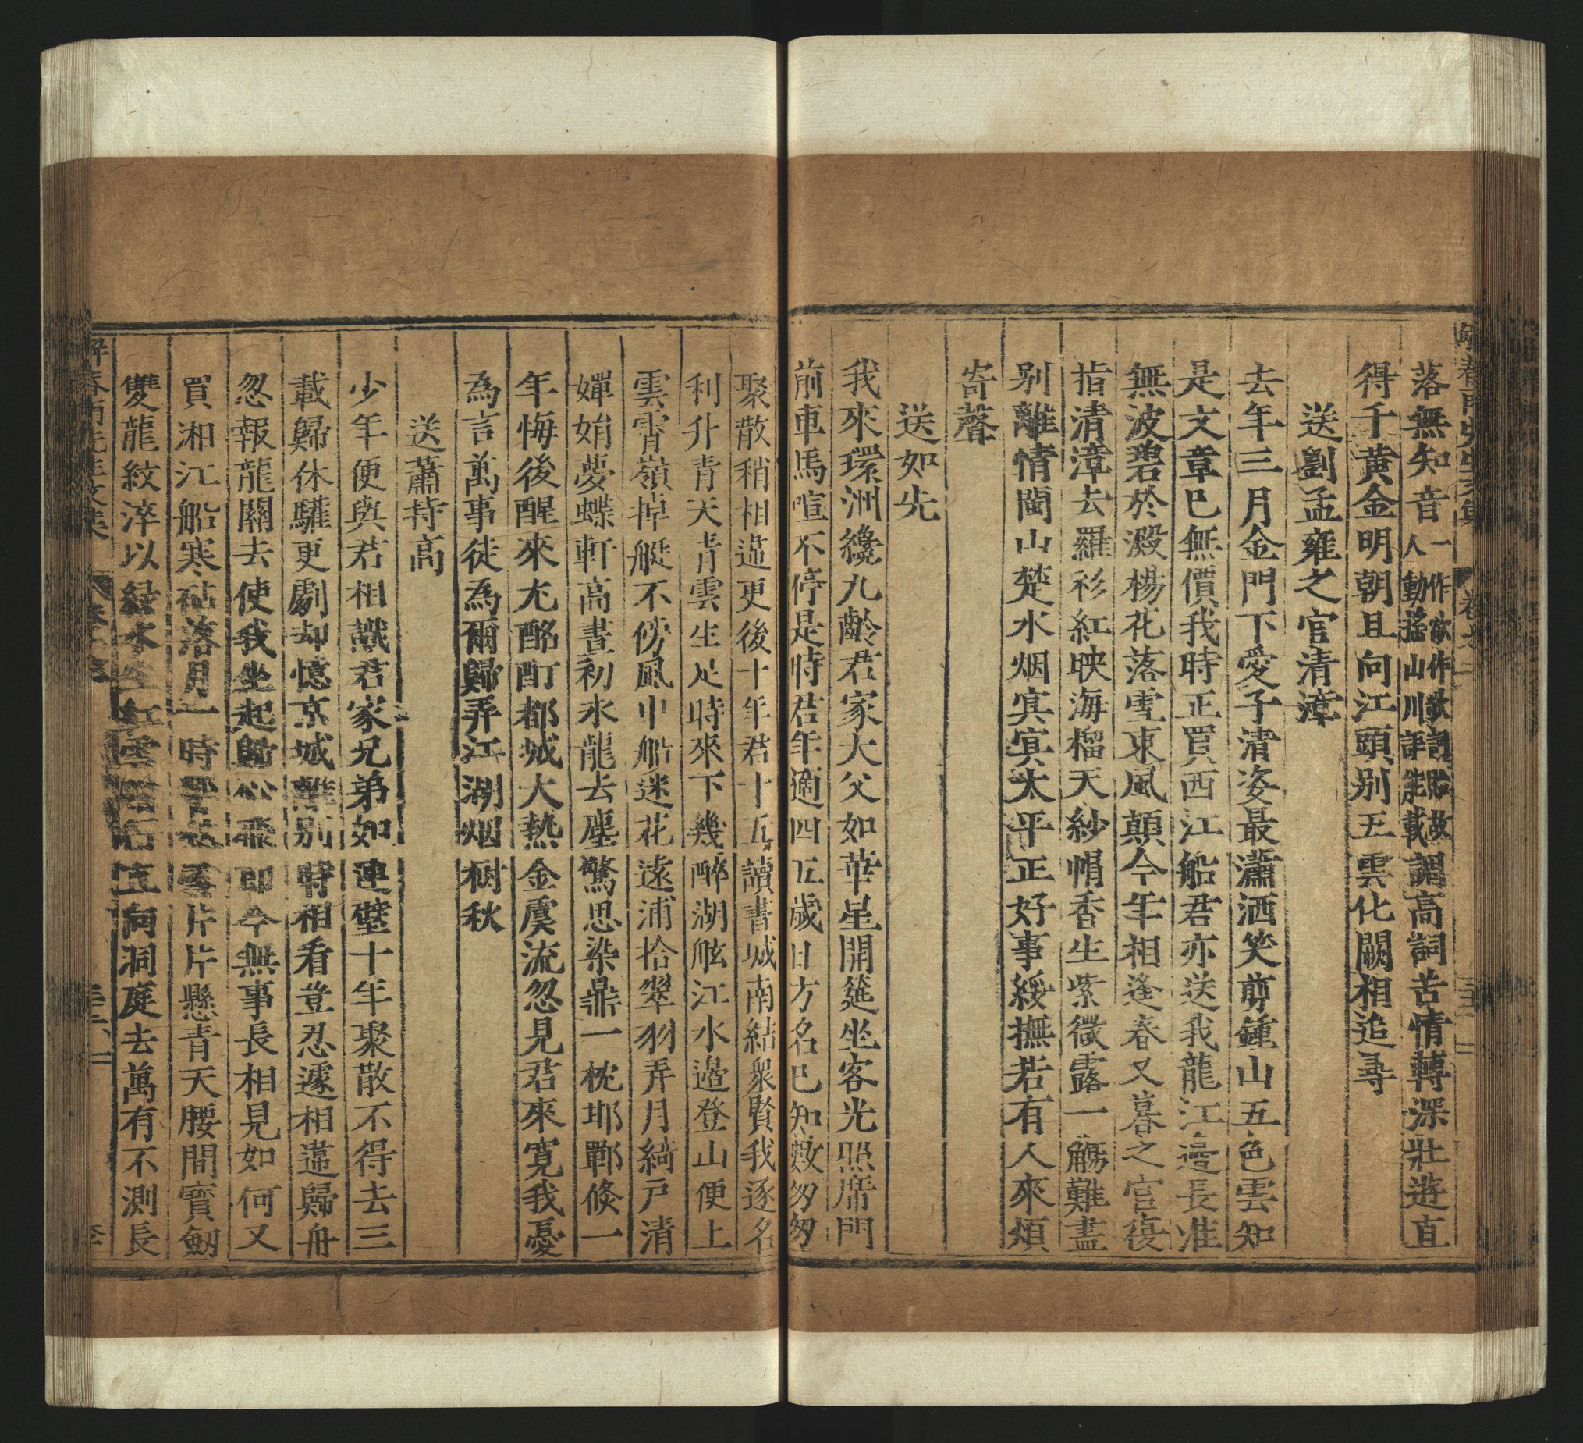 落無知音人一作欲作歌詞贈故動搖山川評生載調高詞苦情轉深壯遊直
得千黃金明朝且向江頭別五雲化闕相追尋
送劉孟雍之官清漳
去年三月金門下愛子清姿最瀟洒笑剪鍾山五色雲知
是文章已無價我時正買西江船君亦送我龍江邊長淮
無波碧於澱楊花落雪東風顛今年相逢春又暮之官復
指清漳去羅衫紅映海榴天紗帽香生紫薇露一觴難盡
别離情閩山楚水烟㝠㝠太平正好事綏撫若有人來煩
寄聲
送如先
我來環洲纔九齡君家大父如華星開筵坐客光照席門
前車馬喧不停是時君年適四五歲日方名巳知数匆匆
聚散稍相違更後十年君十五讀書城南結衆賢我遂名
利升青天青雲生足時來下幾醉湖舷江水邉登山便上
雲霄嶺掉艇不傍風中船迷花遠浦拾翠羽弄月綺戸清
嬋娟夢蝶軒高晝初永龍去塵驚思染鼎一枕邯鄲倏一
年悔後醒來尤酩酊都城大熱金虞流忽見君來寛我憂
為言萬事徒為爾歸弄江湖烟樹秋
送蕭持高
少年便與君相識君家兄弟如連璧十年聚散不得去三
載歸休驩更劇却憶京城離别時相看豈忍遽相違歸舟
忽報龍關去使我坐起歸心飛即今無事長相見如何又
買湘江船寒砧落月一時雪片片懸青天腰間寳劒
雙龍紋淬以綠水向洞庭去萬有不測長